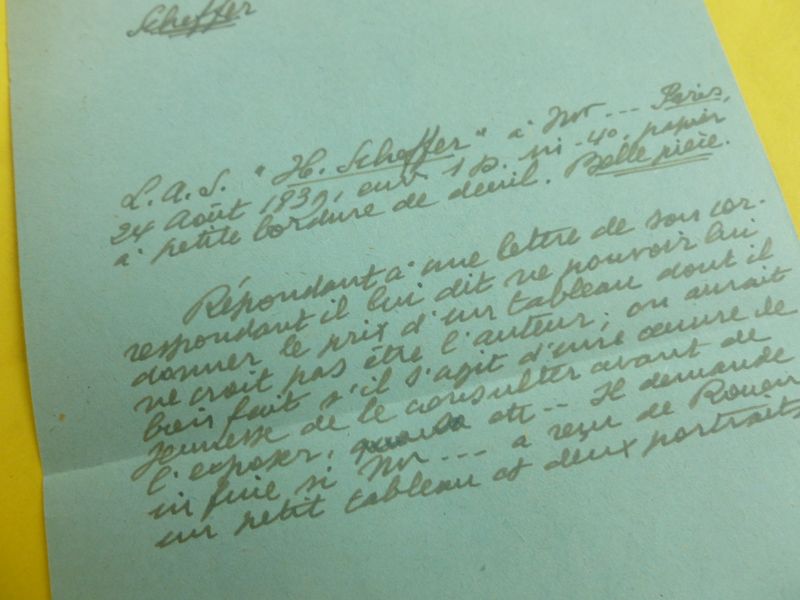 Scheffer
L.A.S. "H. Scheffer" à Mr --- Paris,
24 Août 1839, env 1 p. in-4°, papier
à petite bordure de deuil. Belle pièce.
Répondant à une lettre de son cor-
respondant il lui dit ne pouvoir lui
donner le prix d'un tableau dont il
ne croit pas être l'auteur; on aurait
bien fait s'il s'agit d'une œuvre de
jeunesse de le consulter avant de
l'exposer, etc -- Il demande
in fine si Mr --- a reçu de Rouen
un petit tableau et deux portraits